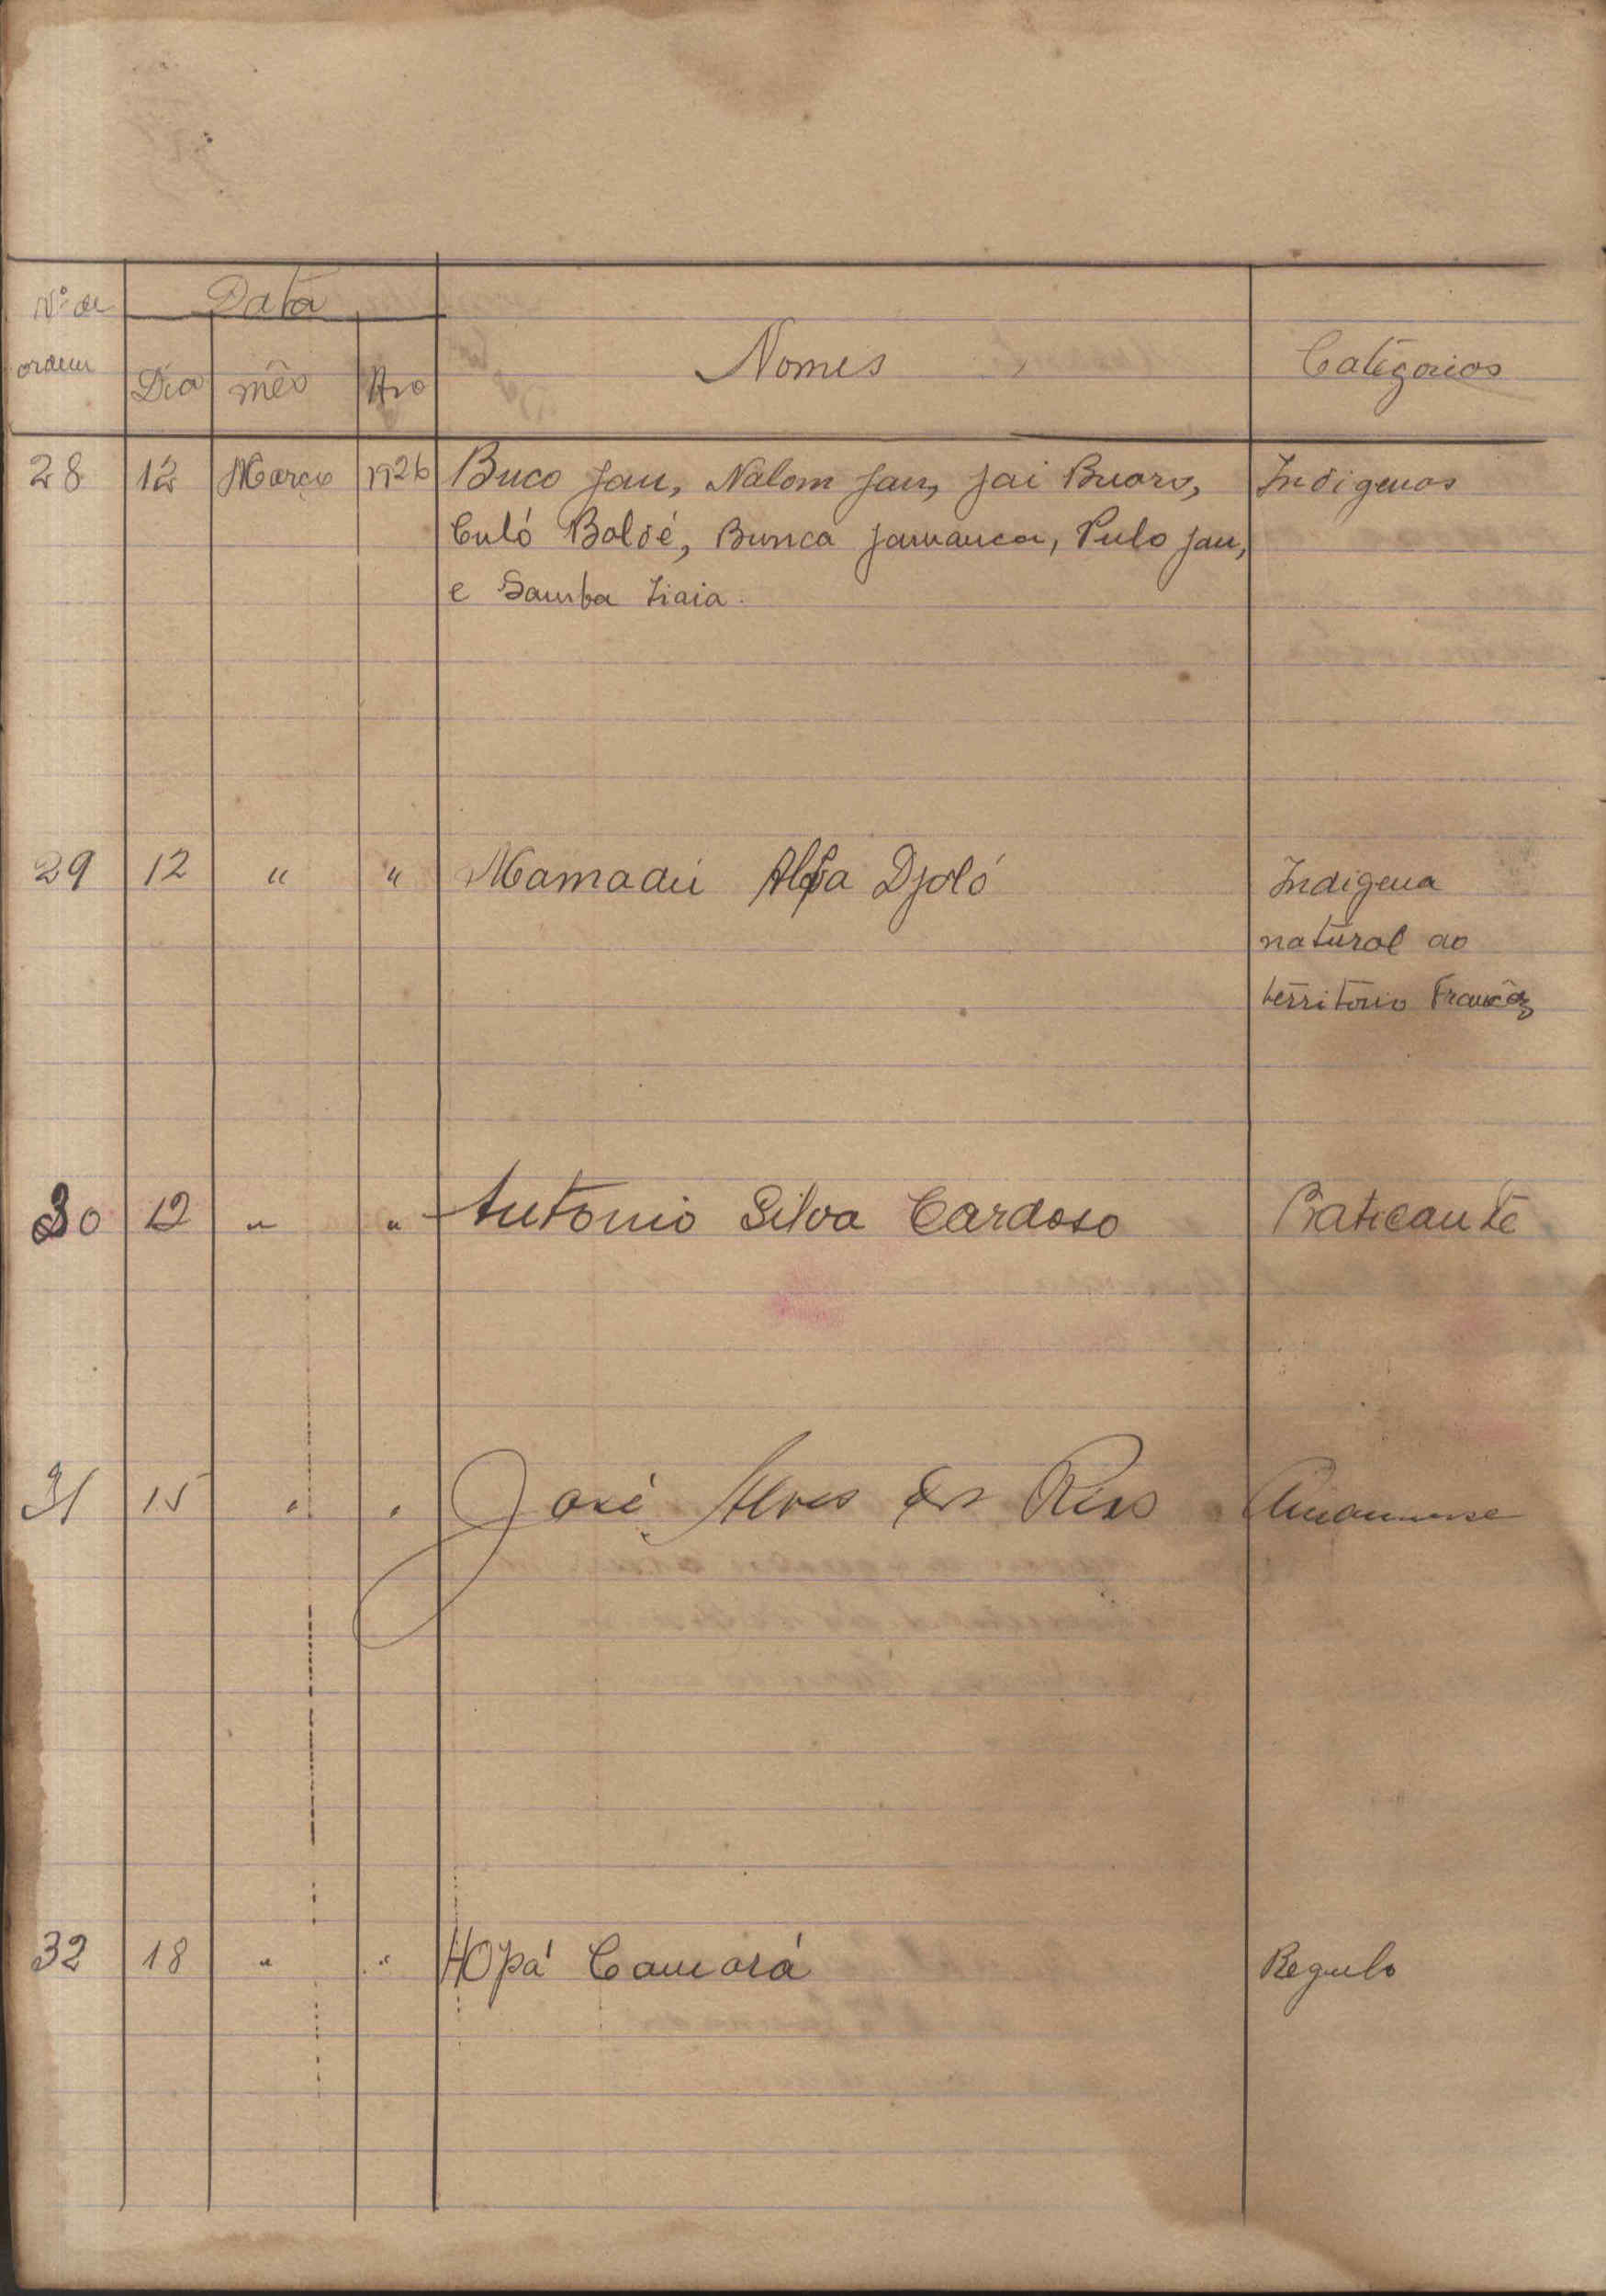 Nº de
ordem
Data
Dia mês Ano
Nomes
Categorias
28 12 Março 1926 Buco Jau, Nalom Jau, Jai Buaro, Indigenas
Culó Baldé, Bunca Jamanca, Pulo Jau,
e Samba Liaia.
29 12 " " Mamadú Alfa Djoló Indigena
natural do
território Francêz
30 12 " " Antonio Silva Cardoso Praticante
31 15 " " José Alves dos Reis
32 18 " " HOpá Camará Regulo